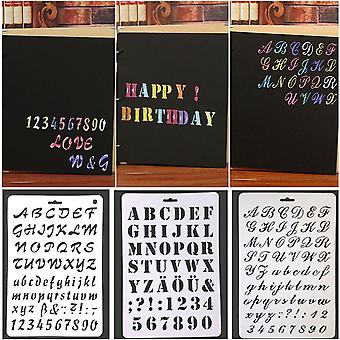 1234567890
LOVE
W & G
HAPPY !
BIRTHDAY
ABCDEF
GHIJKL
MNOPQR
UVWX
ABCDEFG
HIJKLMN
OPQRST
UVWXYZ
abcdefghijkl
mnopqrstuvw
xyz ß&:?!;-
1234567890
ABCDEF
GHIJKL
MNOPQR
STUVWX
YZÄÖÜ&
:?!;1234
567890
ABCDEF
GHIJKL
MNOPQR
STUVWX
YZabcdef
ghijklmno
pqrstuvw
1234567890